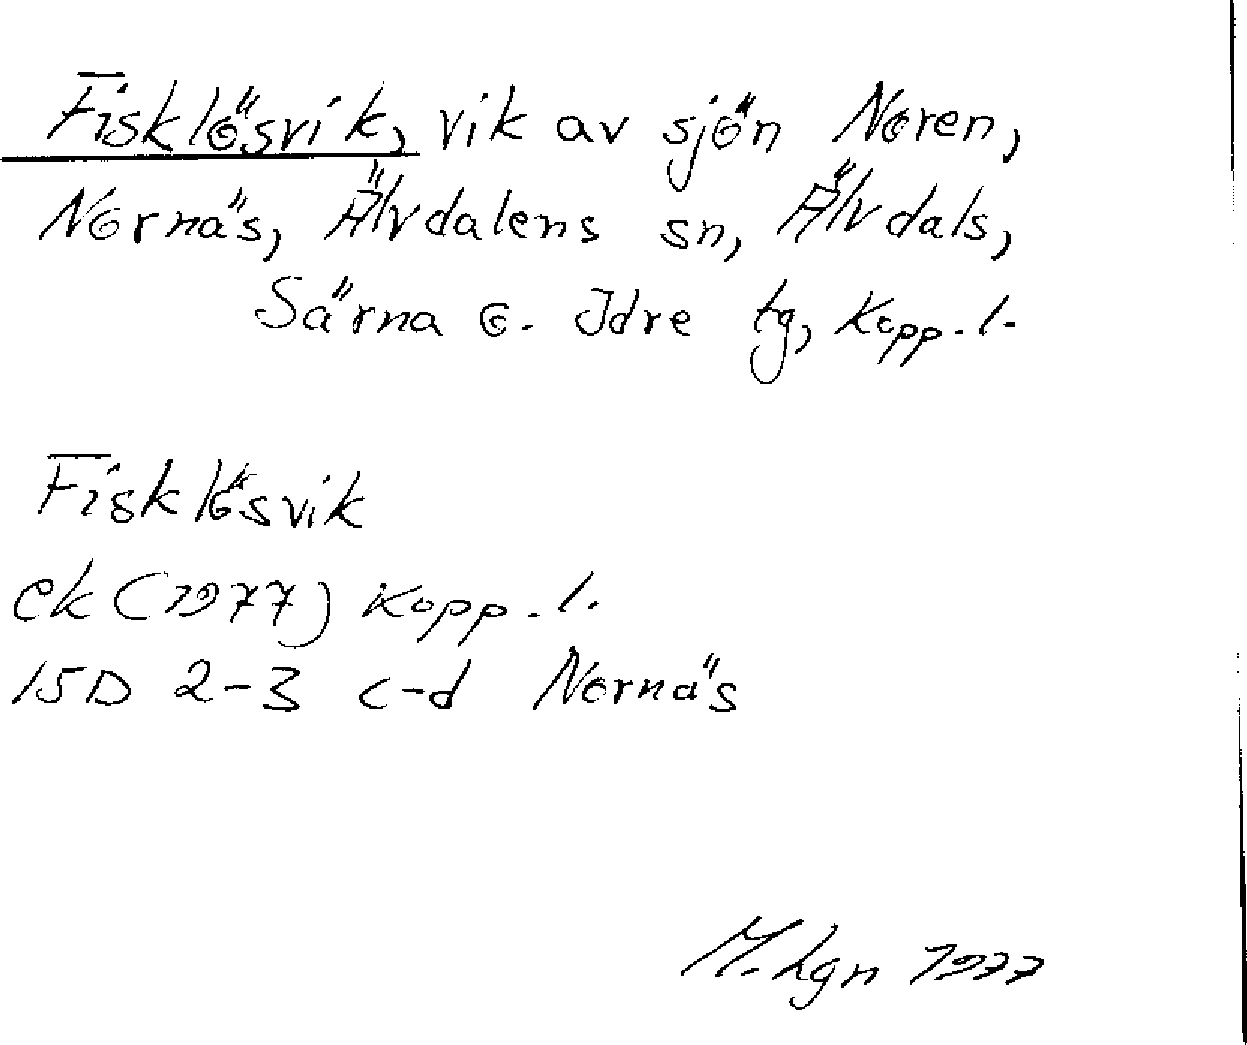 Fisklösvik, vik av sjön Noren,
Nornäs, Älvdalens sn, Älvdals,
Särna o. Idre tg, Kopp. l.
Fisklösvik
ek (1977) Kopp. l.
15D 2-3 c-d Nornäs
M. Lgn 1977